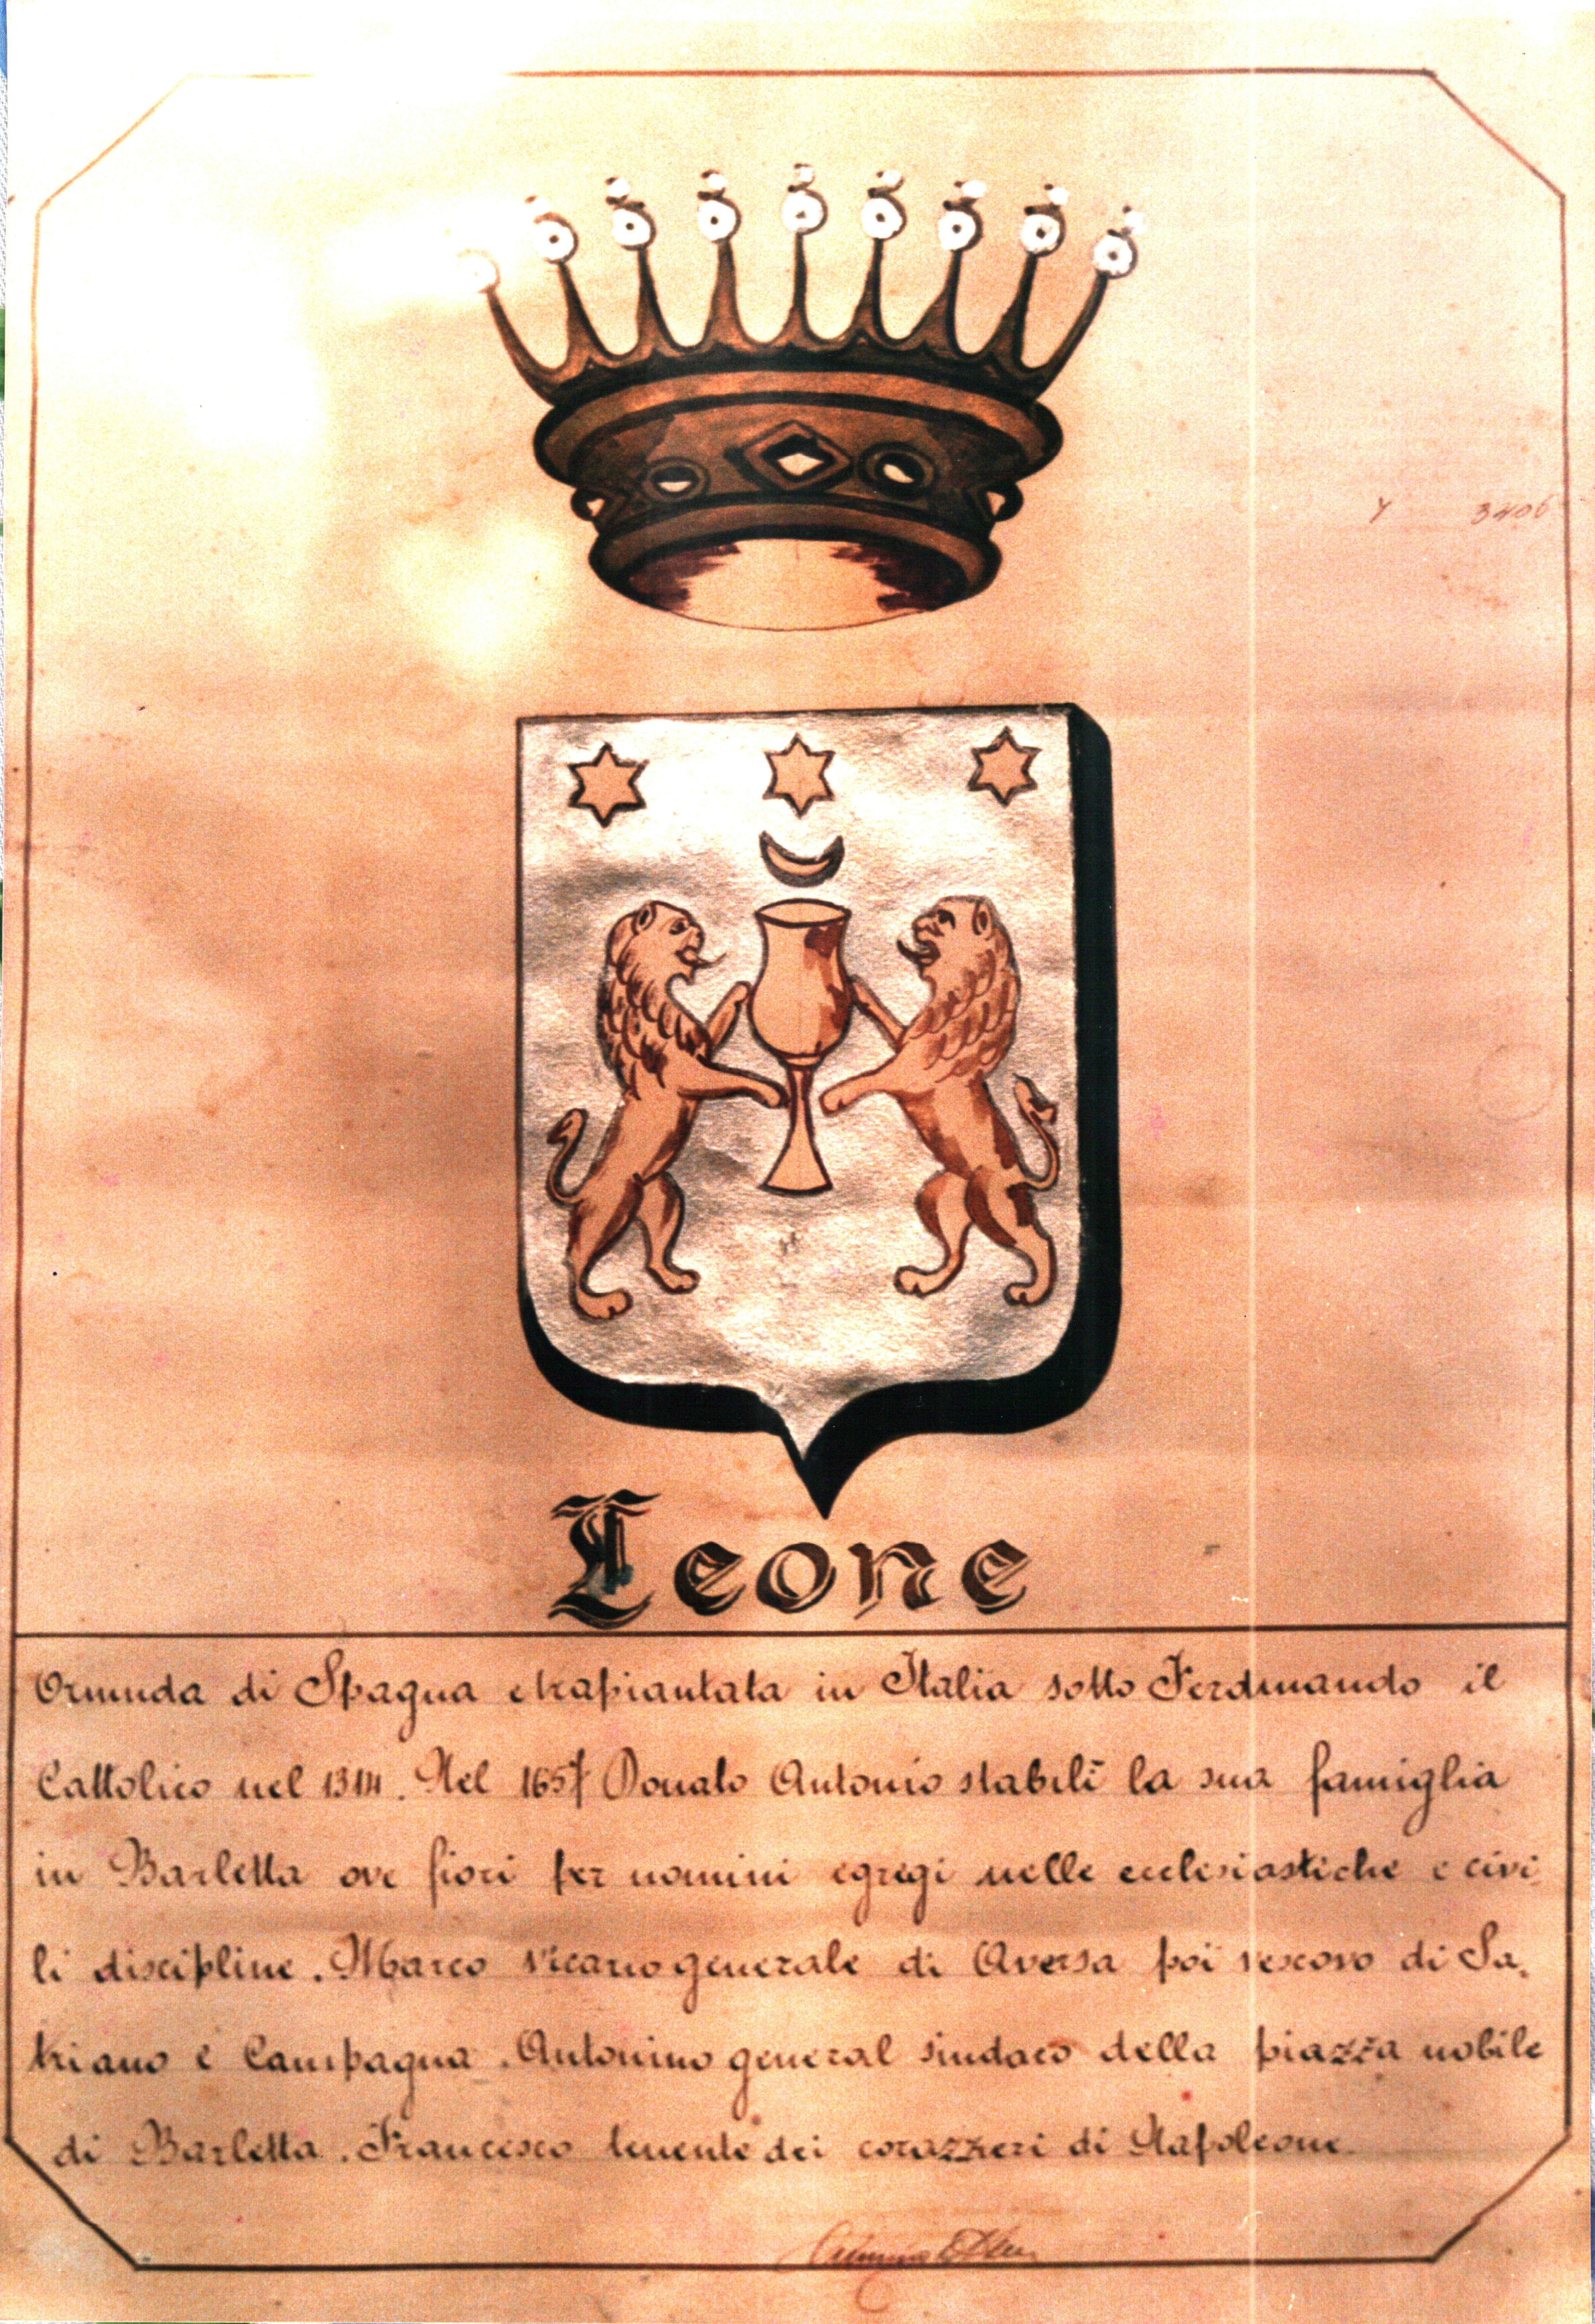 Y 3406
Leone
Oriunda di Spagna e trapiantata in Italia sotto Ferdinando il
Cattolico nel 1314. Nel 1657 Donato Antonio stabilì la sua famiglia
in Barletta ove fiorì per uomini egregi nelle ecclesiastiche e civi-
li discipline. Marco vicario generale di Aversa poi vescovo di Sa-
triano e Campagna. Antonino general sindaco della piazza nobile
di Barletta. Francesco tenente dei corazzieri di Napoleone.